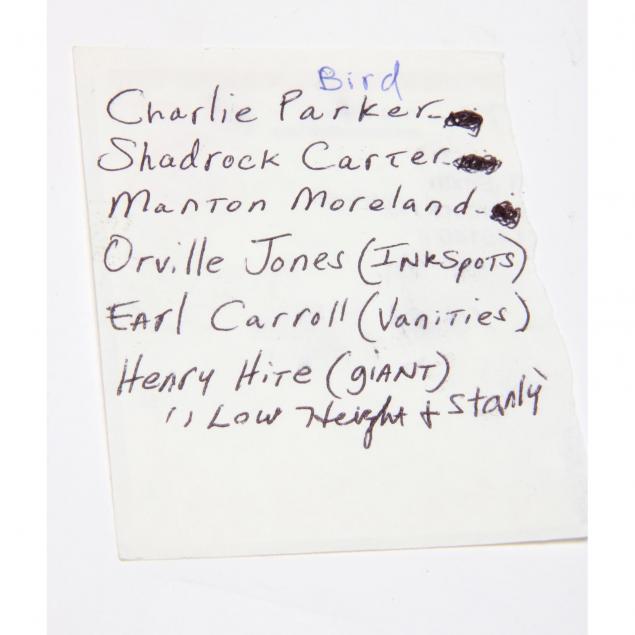 Bird
Charlie Parker-
Shadrock Carter-
Manton Moreland-
Orville Jones (InkSpots)
Earl Carroll (Vanities)
Henry Hite (giant)
" Low Height & Stanly